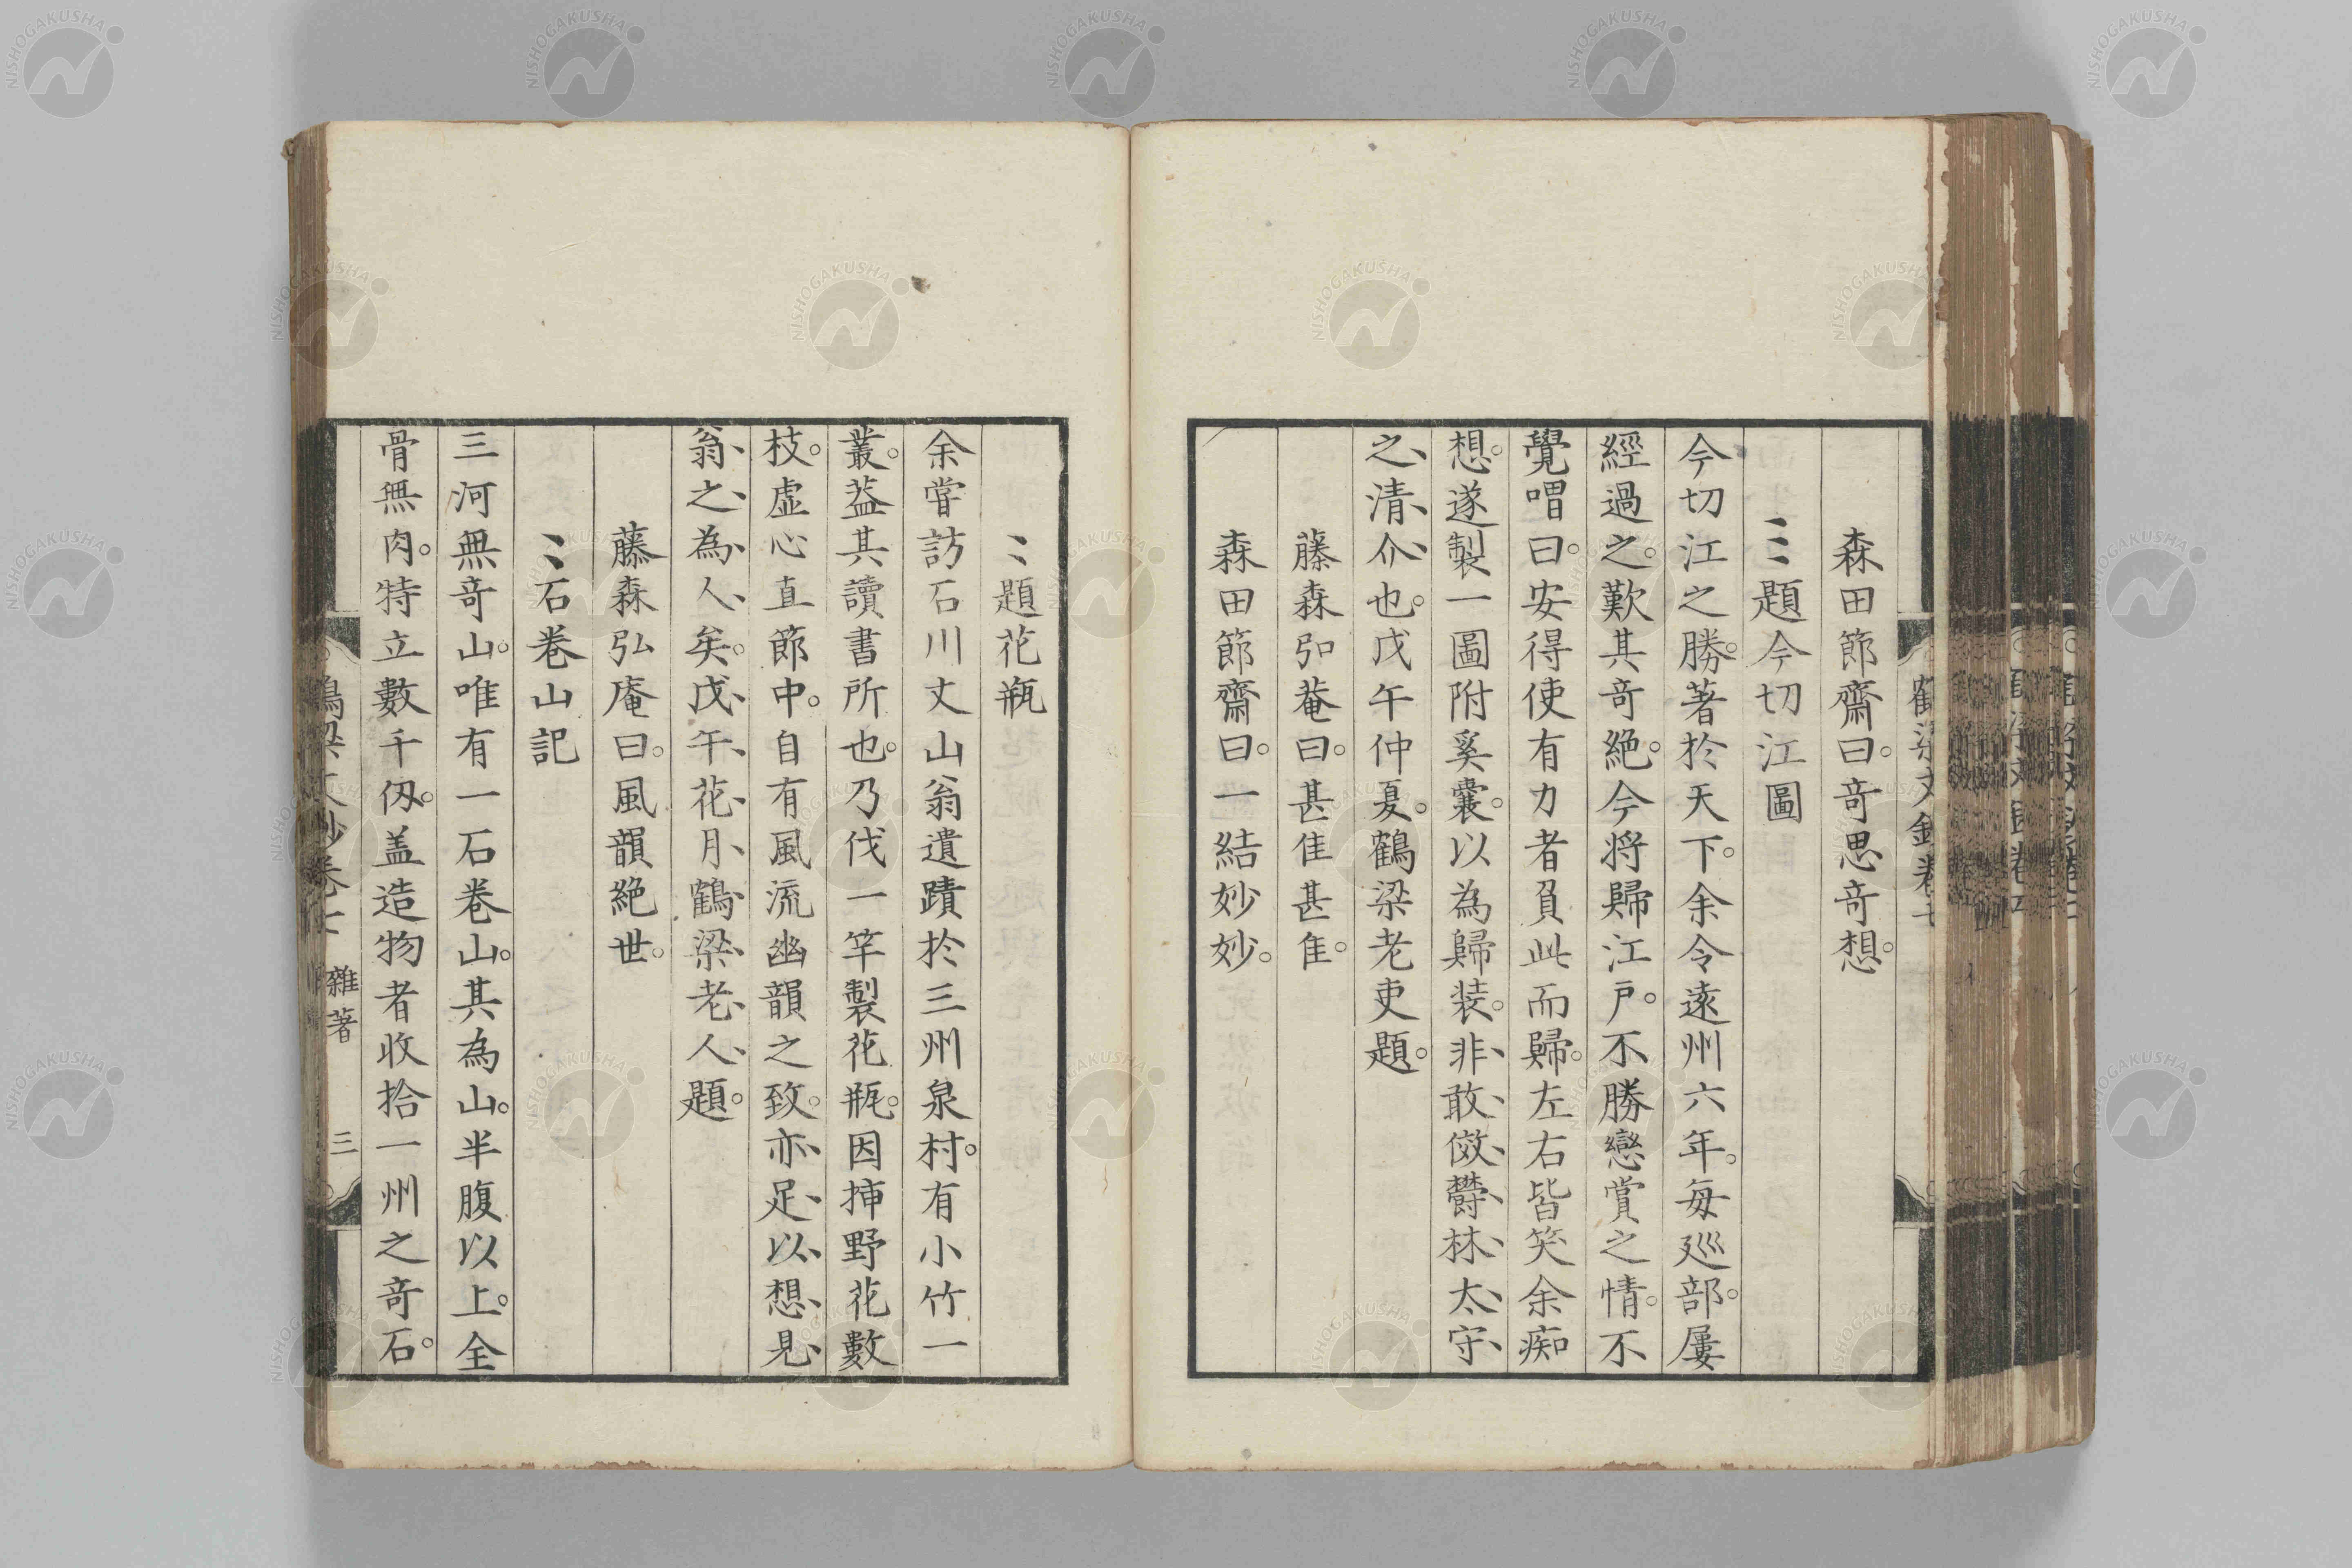 森田節齋曰。奇思奇想。
題今切江圖
今切江之勝。著於天下。余令遠州六年。每巡部。屢
經過之。歎其奇絶。今將歸江戸。不勝戀賞之情。不
覺喟曰。安得使有力者負此而歸。左右皆笑余痴
想。遂製一圖附奚囊。以為歸装。非敢倣欝林太守
之清介也。戊午仲夏。鶴梁老吏題。
藤森弘菴曰。甚佳甚佳。
森田節齋曰。一結妙妙。
題花瓶
余嘗訪石川丈山翁遺蹟於三州泉村。有小竹一
叢。葢其讀書所也。乃伐一竿製花瓶。因挿野花數
枝。虚心直節中。自有風流幽韻之致。亦足以想見
翁之為人矣。戊午花月鶴梁老人題。
藤森弘庵曰。風韻絶世。
石巻山記
三河無奇山。唯有一石巻山。其為山。半腹以上。全
骨無肉。特立數千仭。盖造物者收拾一州之奇石。
鶴梁文鈔卷七 雜著 三
NISHOGAKUSHA